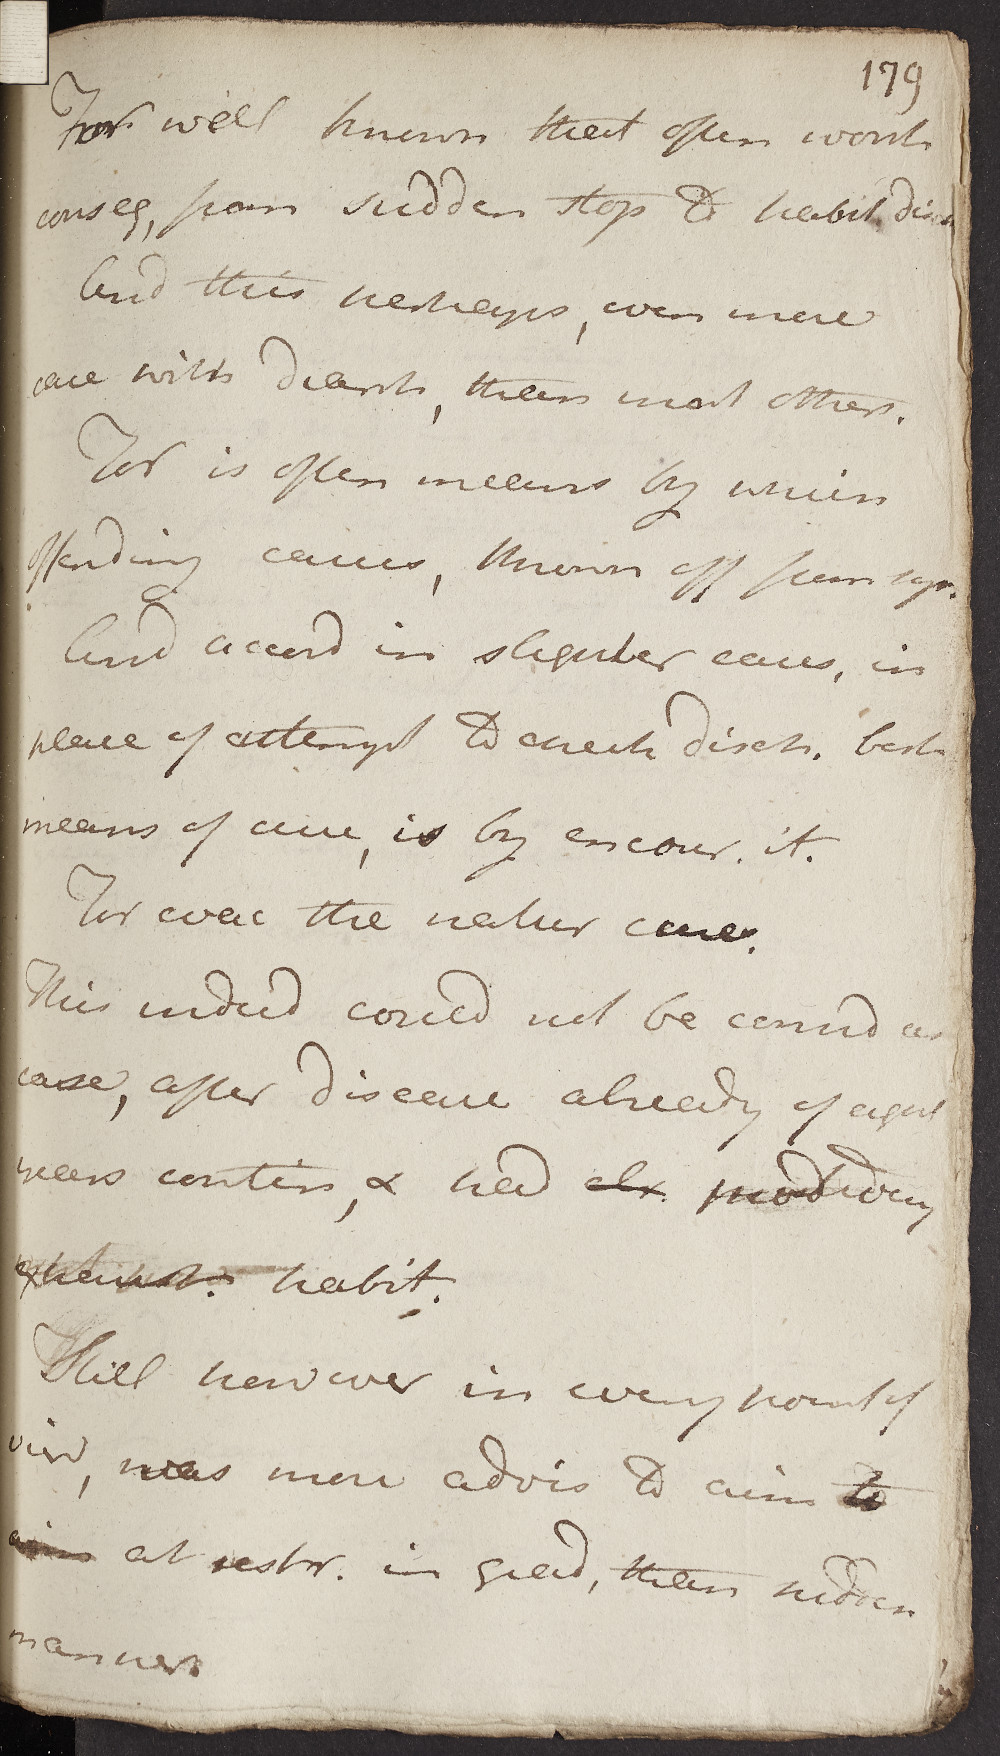 179
For well known that often worst
conseq, from sudden stop to habit. disch
And this perhaps, even more
case with diarrh, than most others.
For is often means by which
offending causes, thrown off from sys.
And accord in slighter cases, in
place of attempt to check disch. best
means of cure, is by encour. it.
For even the natur cure.
This indeed could not be consid as
case, after disease already of eight
years contin, & had
exhaust. habit.
Still however in every point of
view, was more advis to aim to
aim at restr. in grad, than sudden
manner.